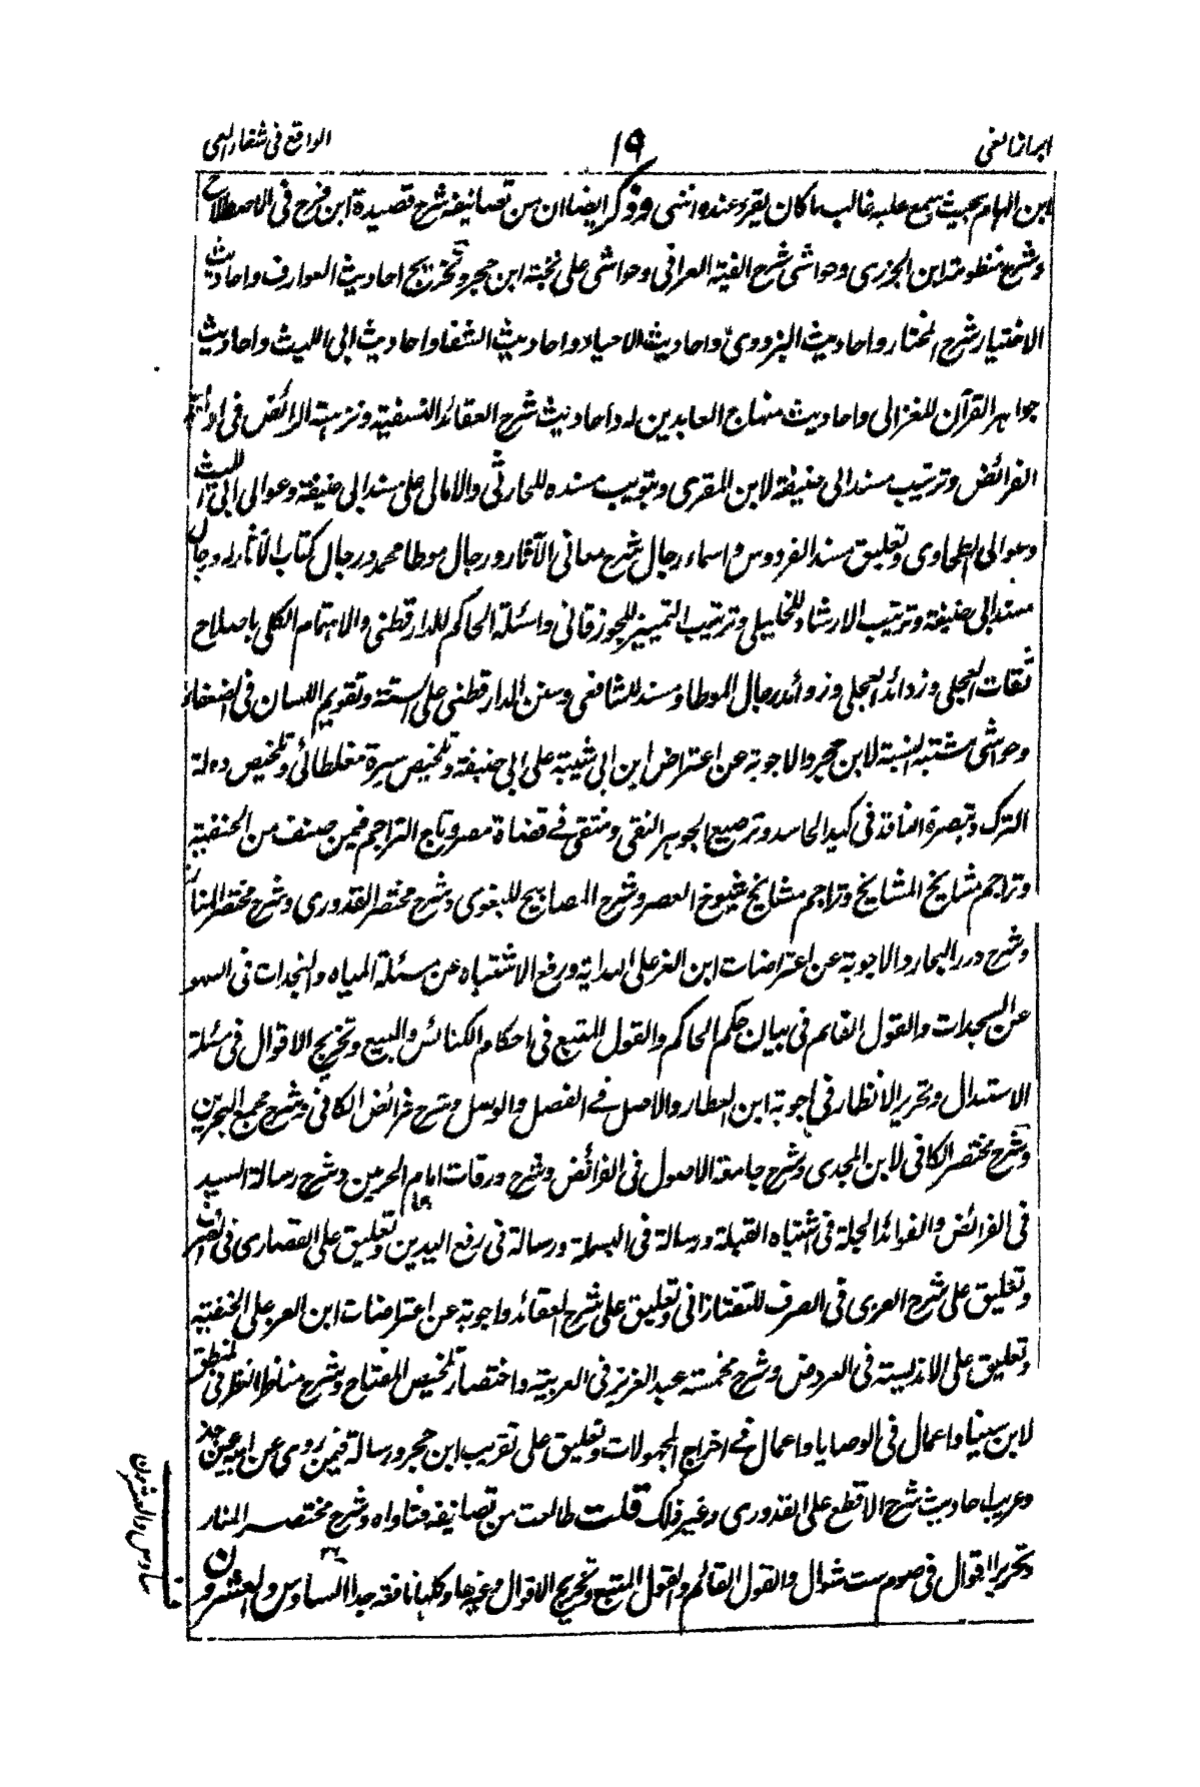 ابراز الغی
۱۹
الواقع فی شفاء العی
ابن الہام بحیث سمع علیہ غالب ما کان یقرء عندہ انتہی وذکر ایضا ان من تصانیفہ شرح قصیدة ابن فرح فی الاصطلاح
وشرح منظومة ابن الجزری وحواشی شرح الفیة العراقی وحواشی علی نخبة ابن حجر وتخریج احادیث العوارف واحادیث
الاختیار شرح المختار واحادیث البزدوی واحادیث الاحیاء واحادیث الشفا واحادیث ابی اللیث واحادیث
جواہر القرآن للغزالی واحادیث منہاج العابدین لہ واحادیث شرح العقائد النسفیة ونزہة الرائض فی ادلة
الفرائض وترتیب مسند ابی حنیفة لابن المقری وتبویب مسندہ للحارثی والامالی علی مسند ابی حنیفة وعوالی ابی اللیث
وعوالی الطحاوی وتعلیق مسند الفردوس واسماء رجال شرح معانی الآثار ورجال موطا محمد ورجال کتاب الآثار لہ ورجال
مسند ابی حنیفة وترتیب الارشاد للخلیلی وترتیب التمییز للجوزقانی واسئلة الحاکم للدارقطنی والاہتمام الکلی باصلاح
ثقات العجلی وزوائد العجلی وزوائد رجال الموطا ومسند للشافعی وسنن الدارقطنی علی الستة وتقویم اللسان فی الضعفاء
وحواشی مشتبہ النسبة لابن حجر والاجوبة عن اعتراض ابن ابی شیبة علی ابی حنیفة وتلخیص سیرة مغلطائی وتلخیص دولة
الترک وتبصرة الناقد فی کید الحاسد وترصیع الجوہر النقی ومنتقی فی قضاة مصر وتاج التراجم فیمن صنف من الحنفیة
وتراجم مشایخ المشایخ وتراجم مشایخ شیوخ العصر وشرح المصابیح للبغوی وشرح مختصر القدوری وشرح مختصر المنار
وشرح درر البحار والاجوبة عن اعتراضات ابن العز علی الہدایة ورفع الاشتباہ عن مسئلة المیاہ والنجدات فی السہو
عن السجدات والقول القائم فی بیان حکم الحاکم والقول المتبع فی احکام الکنائس والبیع وتخریج الاقوال فی مسئلة
الاستبدال وتحریر الانظار فی اجوبة ابن العطار والاصل فی الفصل والوصل وشرح فرائض الکافی وشرح مجمع البحرین
وشرح مختصر الکافی لابن المجدی وشرح جامعة الاصول فی الفرائض وشرح ورقات امام الحرمین وشرح رسالة السید
فی الفرائض والفوائد الجلة فی اشتباہ القبلة ورسالة فی البسملة ورسالة فی رفع الیدین وتعلیق علی القصاری فی
وتعلیق علی شرح العزی فی الصرف للتفتازانی وتعلیق علی شرح العقائد واجوبة عن اعتراضات ابن العز علی الحنفیة
وتعلیق علی الاندلسیة فی العروض وشرح مخمسة عبد العزیز فی العربیة واختصار تلخیص المفتاح وشرح مناظر النظر فی المنطق
لابن سینا واعمال فی الوصایا واعمال فی اخراج المجہولات وتعلیق علی تقریب ابن حجر ورسالة فیمن روی عن ابیہ عن جدہ
وغریب احادیث شرح الاقطع علی القدوری وغیر ذلک قلت طالعت من تصانیفہ فتاواہ وشرح مختصر المنار
وتحریر الاقوال فی صوم ست شوال والقول القائم والقول المتبع وتخریج الاقوال وغیرہا وکلہا نافعة جدا السادس والعشرون
سادس والعشرون